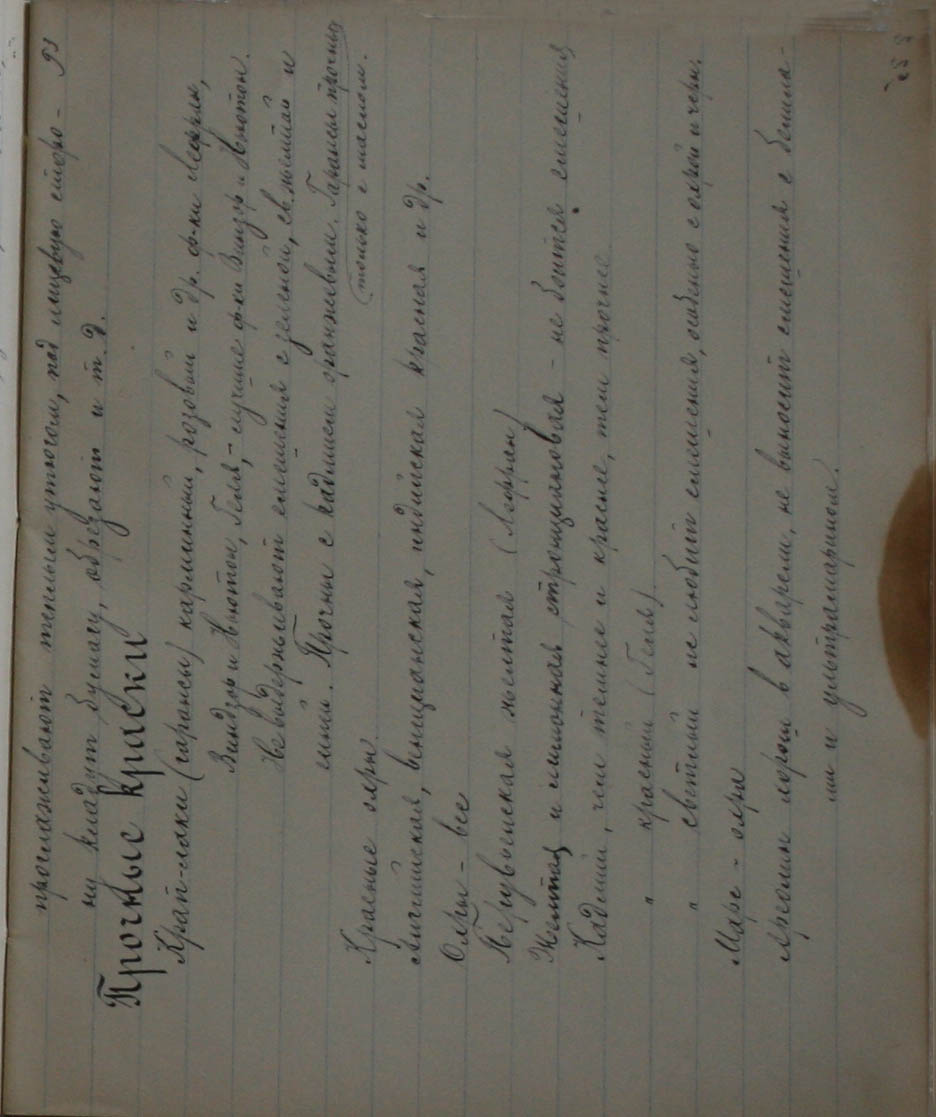 93
проглаживают теплым утюгом, под лицевую сторо-
ну кладут бумагу, обрезают и т. д.
Прочные краски
Крап-лаки (гарансы) карминный, розовый и др. ф-ки Лефран,
Виндзор и Ньютон, Гепля, - лучшие ф-ки Виндзор и Ньютон.
Не выдерживают смешения с зеленой, св. желтой и
синей. Прочны с кадмием оранжевым. Гарансы прочны
(только с маслом.
Красные охры
Английская, венецианская, индийская красная и др.
Охры - все
Неаполитанская желтая (Лефран)
Желтая и лимонная стронциановая - не боится смешения
Кадмий, чем темнее и краснее, тем прочнее
" красный (Гепля)
" светлый не любит смешения, особенно с охрой и черн.
Марс - охра
Ауреолин хорош в акварели, не выносит смешения с белила-
ми и ультрамарином.